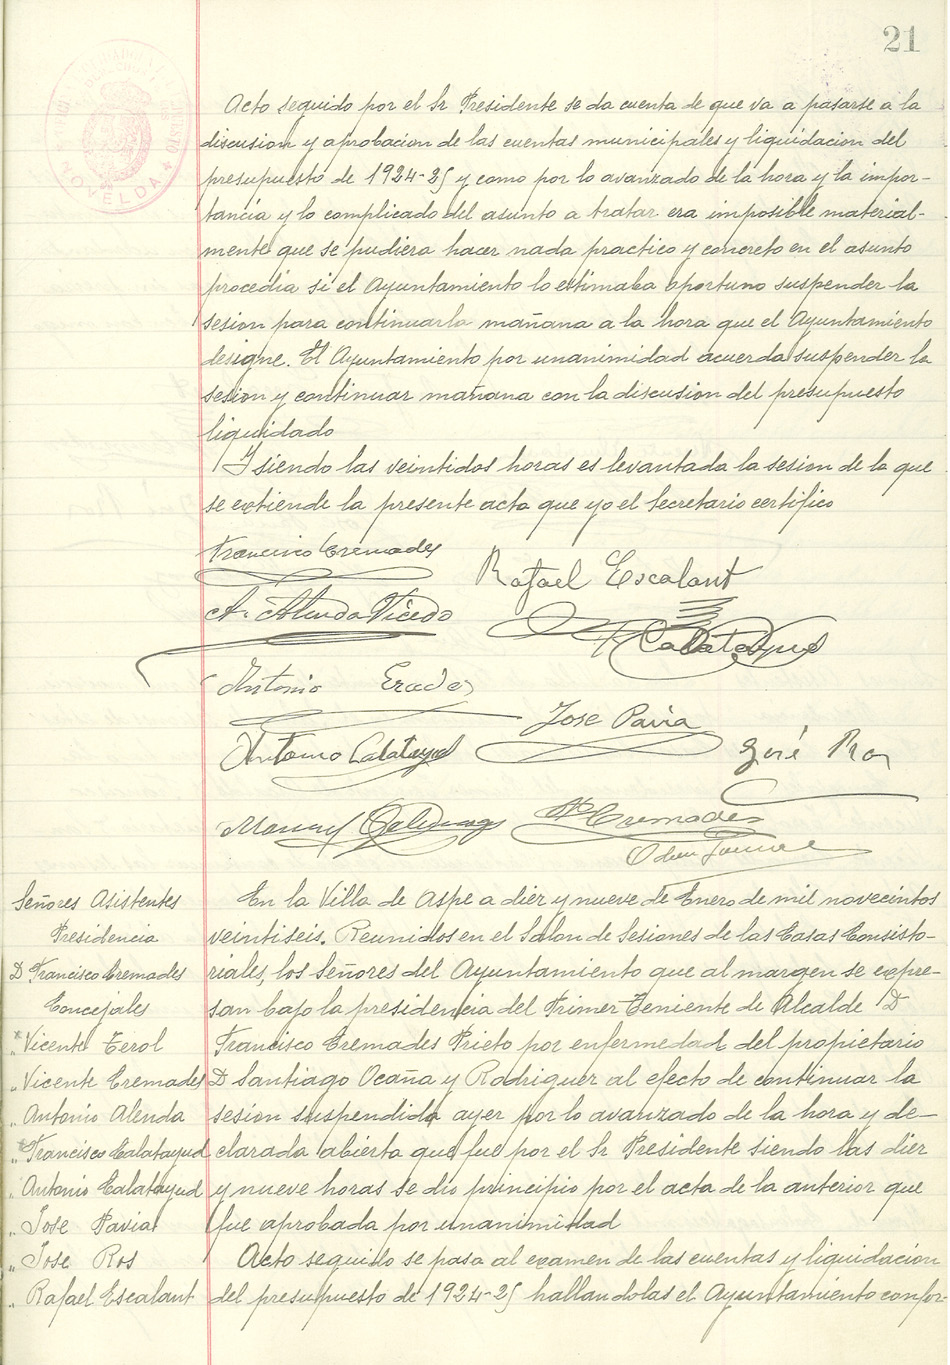 21
NOVELDA
Acto seguido por el Sr Presidente se da cuenta de que va a pasarse a la
discusion y aprobacion de las cuentas municipales y liquidacion del
presupuesto de 1924-25 y como por lo avanzado de la hora y la impor-
tancia y lo complicado del asunto a tratar era imposible material-
mente que se pudiera hacer nada practico y concreto en el asunto
procedia si el Ayuntamiento lo estimaba oportuno suspender la
sesion para continuarla mañana a la hora que el Ayuntamiento
designe. El Ayuntamiento por unanimidad acuerda suspender la
sesion y continuar mañana con la discusion del presupuesto
liquidado
Y siendo las veintidos horas es levantada la sesion de la que
se extiende la presente acta que yo el Secretario certifico
Francisco Cremades
Rafael Escalant
A. Alenda Vicedo
F Calatayud
Antonio
Jose Pavia
Antonio Calatayud
José Ros
Manuel
Cremades
Señores Asistentes
Presidencia
D Francisco Cremades
Concejales
" Vicente Terol
" Vicente Cremades
" Antonio Alenda
" Francisco Calatayud
" Antonio Calatayud
" Jose Pavia
" Jose Ros
" Rafael Escalant
En la Villa de Aspe a diez y nueve de Enero de mil novecintos
veintiseis. Reunidos en el Salon de Sesiones de las Casas Consisto-
riales, los Señores del Ayuntamiento que al margen se expre-
san bajo la presidencia del Primer Teniente de Alcalde D
Francisco Cremades Prieto por enfermedad del propietario
D Santiago Ocaña y Rodriguez al efecto de continuar la
sesion suspendida ayer por lo avanzado de la hora y de-
clarada abierta que fue por el Sr Presidente siendo las diez
y nueve horas se dio principio por el acta de la anterior que
fue aprobada por unanimidad
Acto seguido se pasa al examen de las cuentas y liquidacion
del presupuesto de 1924-25 hallandolas el Ayuntamiento confor-